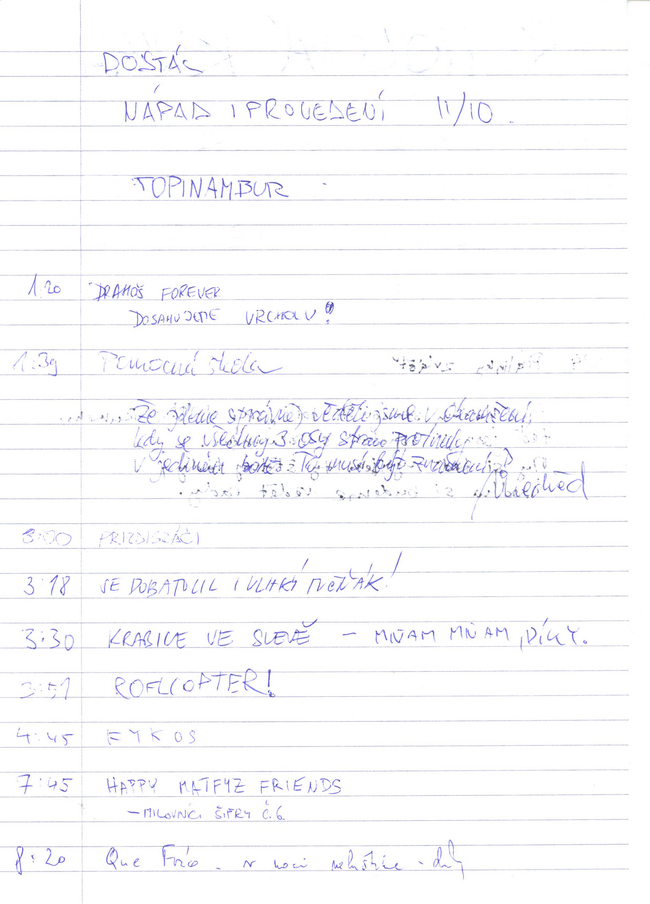 DOSTÁL
NÁPAD I PROVEDENÍ 11/10.
TOPINAMBUR
1:20 DRAHOŠ FOREVER
DOSAHUJEME VRCHOLU!
1:39 Pomocná škola
Že jdeme správně, věděli jsme v okamžení,
kdy se všechny 3 osy protínaly
v jediném
3:00
3:18 SE DOBATOLIL I VLHKÝ
3:30 KRABICE VE SLEVĚ – MŇAM MŇAM, DÍKY.
3:51 ROFLCOPTER!
4:45 EYKOS
7:45 HAPPY MATFYZ FRIENDS
– MILOVNÍCI ŠIFRY Č.6.
8:20 Que v noci - díky